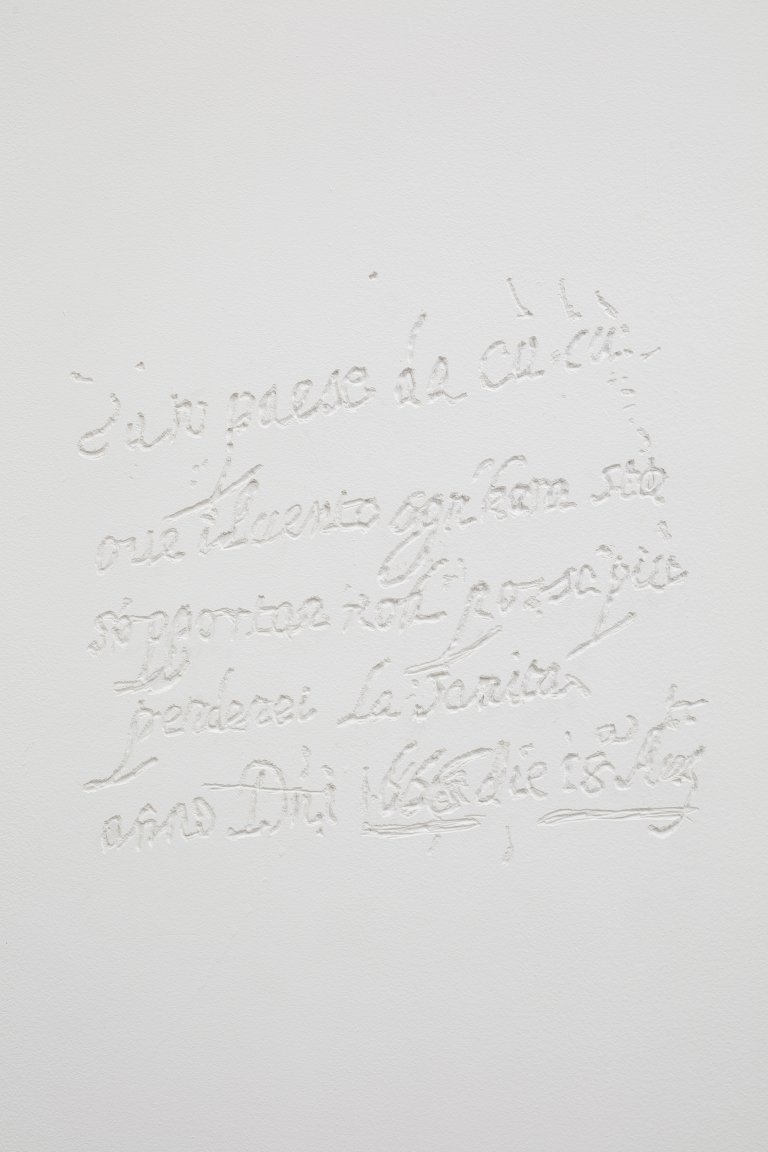 in paese da cu cu
oue il uento ogni hora sta
sopportar non possa più
perderei la Sanita
anno Dñi 1666 die 15 Aug